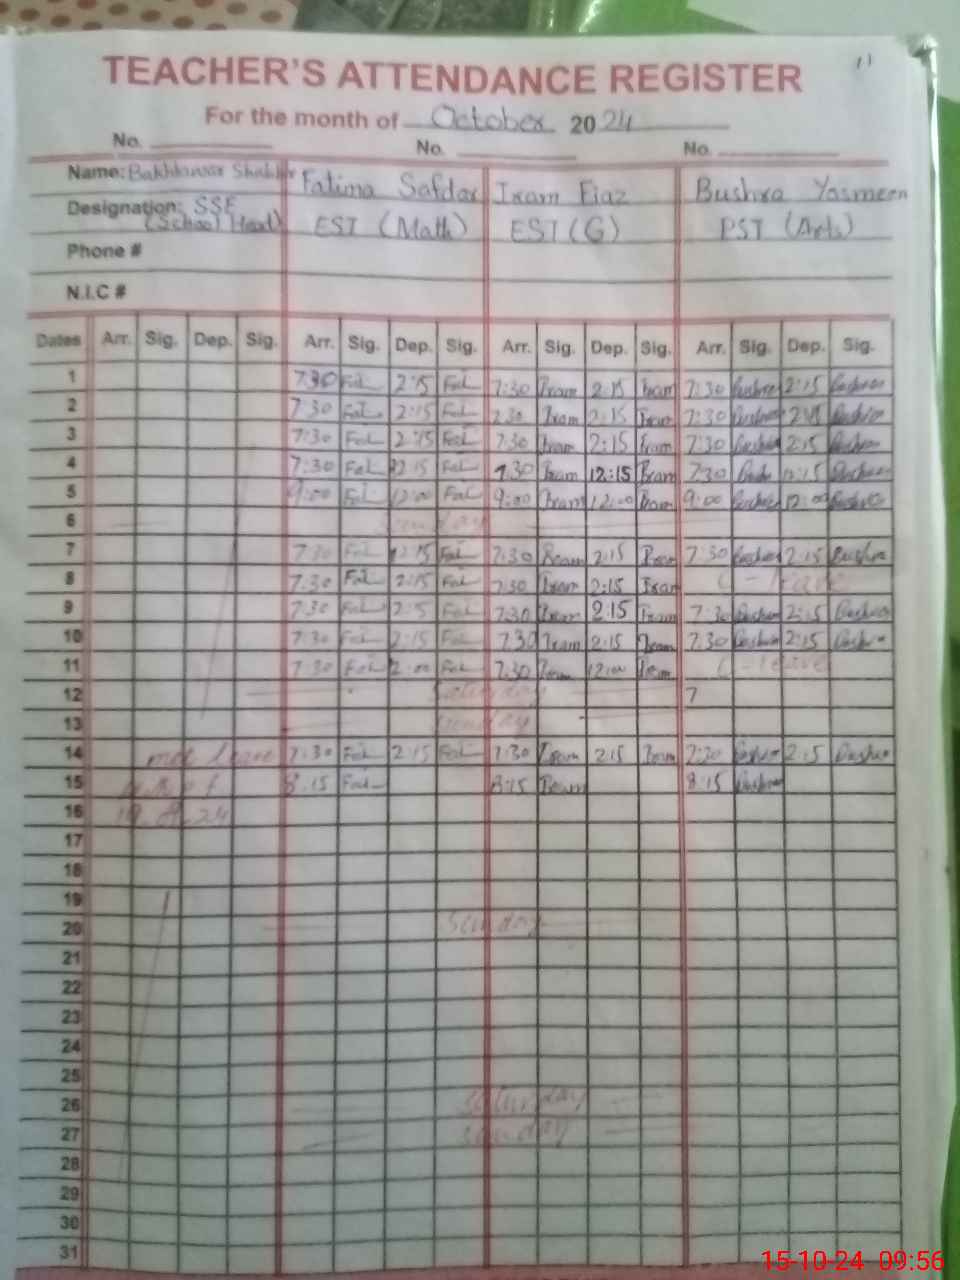 11
TEACHER'S ATTENDANCE REGISTER
For the month of October 2024
No. No. No.
Name: Bakhtawar Shabbir Fatima Safdar Iram Fiaz Bushra Yasmeen
Designation: SSE (School Head) EST (Math) EST (G) PST (Arts)
Phone #
N.I.C #
Dates Arr. Sig. Dep. Sig. Arr. Sig. Dep. Sig. Arr. Sig. Dep. Sig. Arr. Sig. Dep. Sig.
1 7:30 Fat 2:15 Fat 7:30 Iram 2:15 Iram 7:30 Bushra 2:15 Bushra
2 7:30 Fat 2:15 Fat 7:30 Iram 2:15 Iram 7:30 Bushra 2:15 Bushra
3 7:30 Fat 2:15 Fat 7:30 Iram 2:15 Iram 7:30 Bushra 2:15 Bushra
4 7:30 Fat 12:15 Fat 7:30 Iram 12:15 Iram 7:30 12:15 Bushra
5 9:00 Fat 12:00 Fat 9:00 Iram 12:00 Iram 9:00 Bushra 12:00 Bushra
6 Sunday
7 7:30 Fat 2:15 Fat 7:30 Iram 2:15 Iram 7:30 Bushra 2:15 Bushra
8 7:30 Fat 2:15 Fat 7:30 Iram 2:15 Iram C-leave
9 7:30 Fat 2:15 Fat 7:30 Iram 2:15 Iram 7:30 Bushra 2:15 Bushra
10 7:30 Fat 2:15 Fat 7:30 Iram 2:15 Iram 7:30 Bushra 2:15 Bushra
11 7:30 Fat 12:00 Fat 7:30 Iram 12:00 Iram C-leave
12 Saturday 7
13 Sunday
14 leave 7:30 Fat 2:15 Fat 7:30 Iram 2:15 Iram 7:30 Bushra 2:15 Bushra
15 8:15 Fat 8:15 Iram 8:15 Bushra
16
17
18
19
20 Sunday
21
22
23
24
25
26 Saturday
27 Sunday
28
29
30
31
15-10-24 09:56